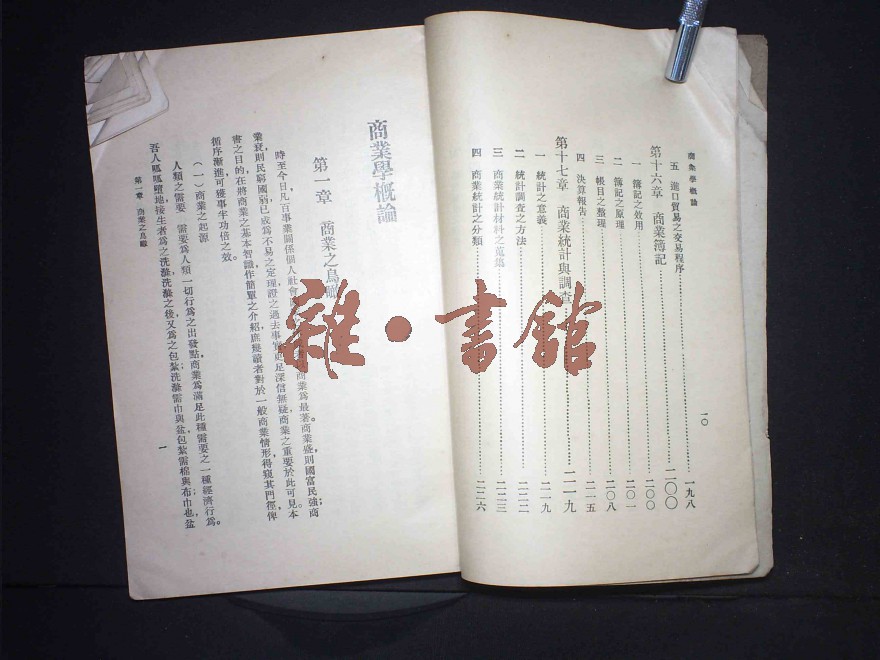 商業學概論
一〇
五 進口貿易之交易程序 一九八
第十六章 商業簿記 二〇〇
一 簿記之效用 二〇〇
二 簿記之原理 二〇一
三 帳目之整理 二〇八
四 決算報告 二一五
第十七章 商業統計與調查 二一九
一 統計之意義 二一九
二 統計調查之方法 二二二
三 商業統計材料之蒐集 二二三
四 商業統計之分類 二二六
商業學概論
第一章 商業之鳥瞰
時至今日，凡百事業關係個人社會 商業爲最著。商業盛，則國富民強；商
業衰，則民窮國弱，已成爲不易之定理，證之過去事實，更足深信無疑，商業之重要於此可見。本
書之目的，在將商業之基本智識，作簡單之介紹，庶幾讀者對於一般商業情形，得窺其門徑，俾
循序漸進，可獲事半功倍之效。
（一）商業之起源
人類之需要 需要爲人類一切行爲之出發點，商業爲滿足此種需要之一種經濟行爲。
吾人呱呱墮地，接生者爲之洗滌，洗滌之後，又爲之包紮，洗滌需巾與盆，包紮需棉與布，巾也，盆
第一章 商業之鳥瞰
一
雜·書館